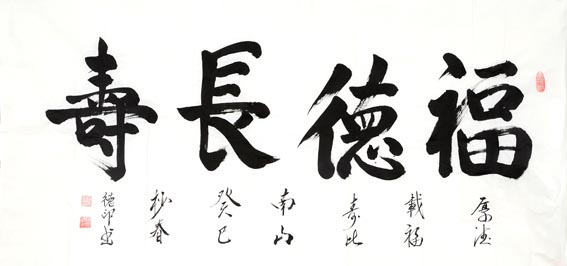 福德長壽
厚德
載福
壽比
南山
癸巳
杪春
德印書